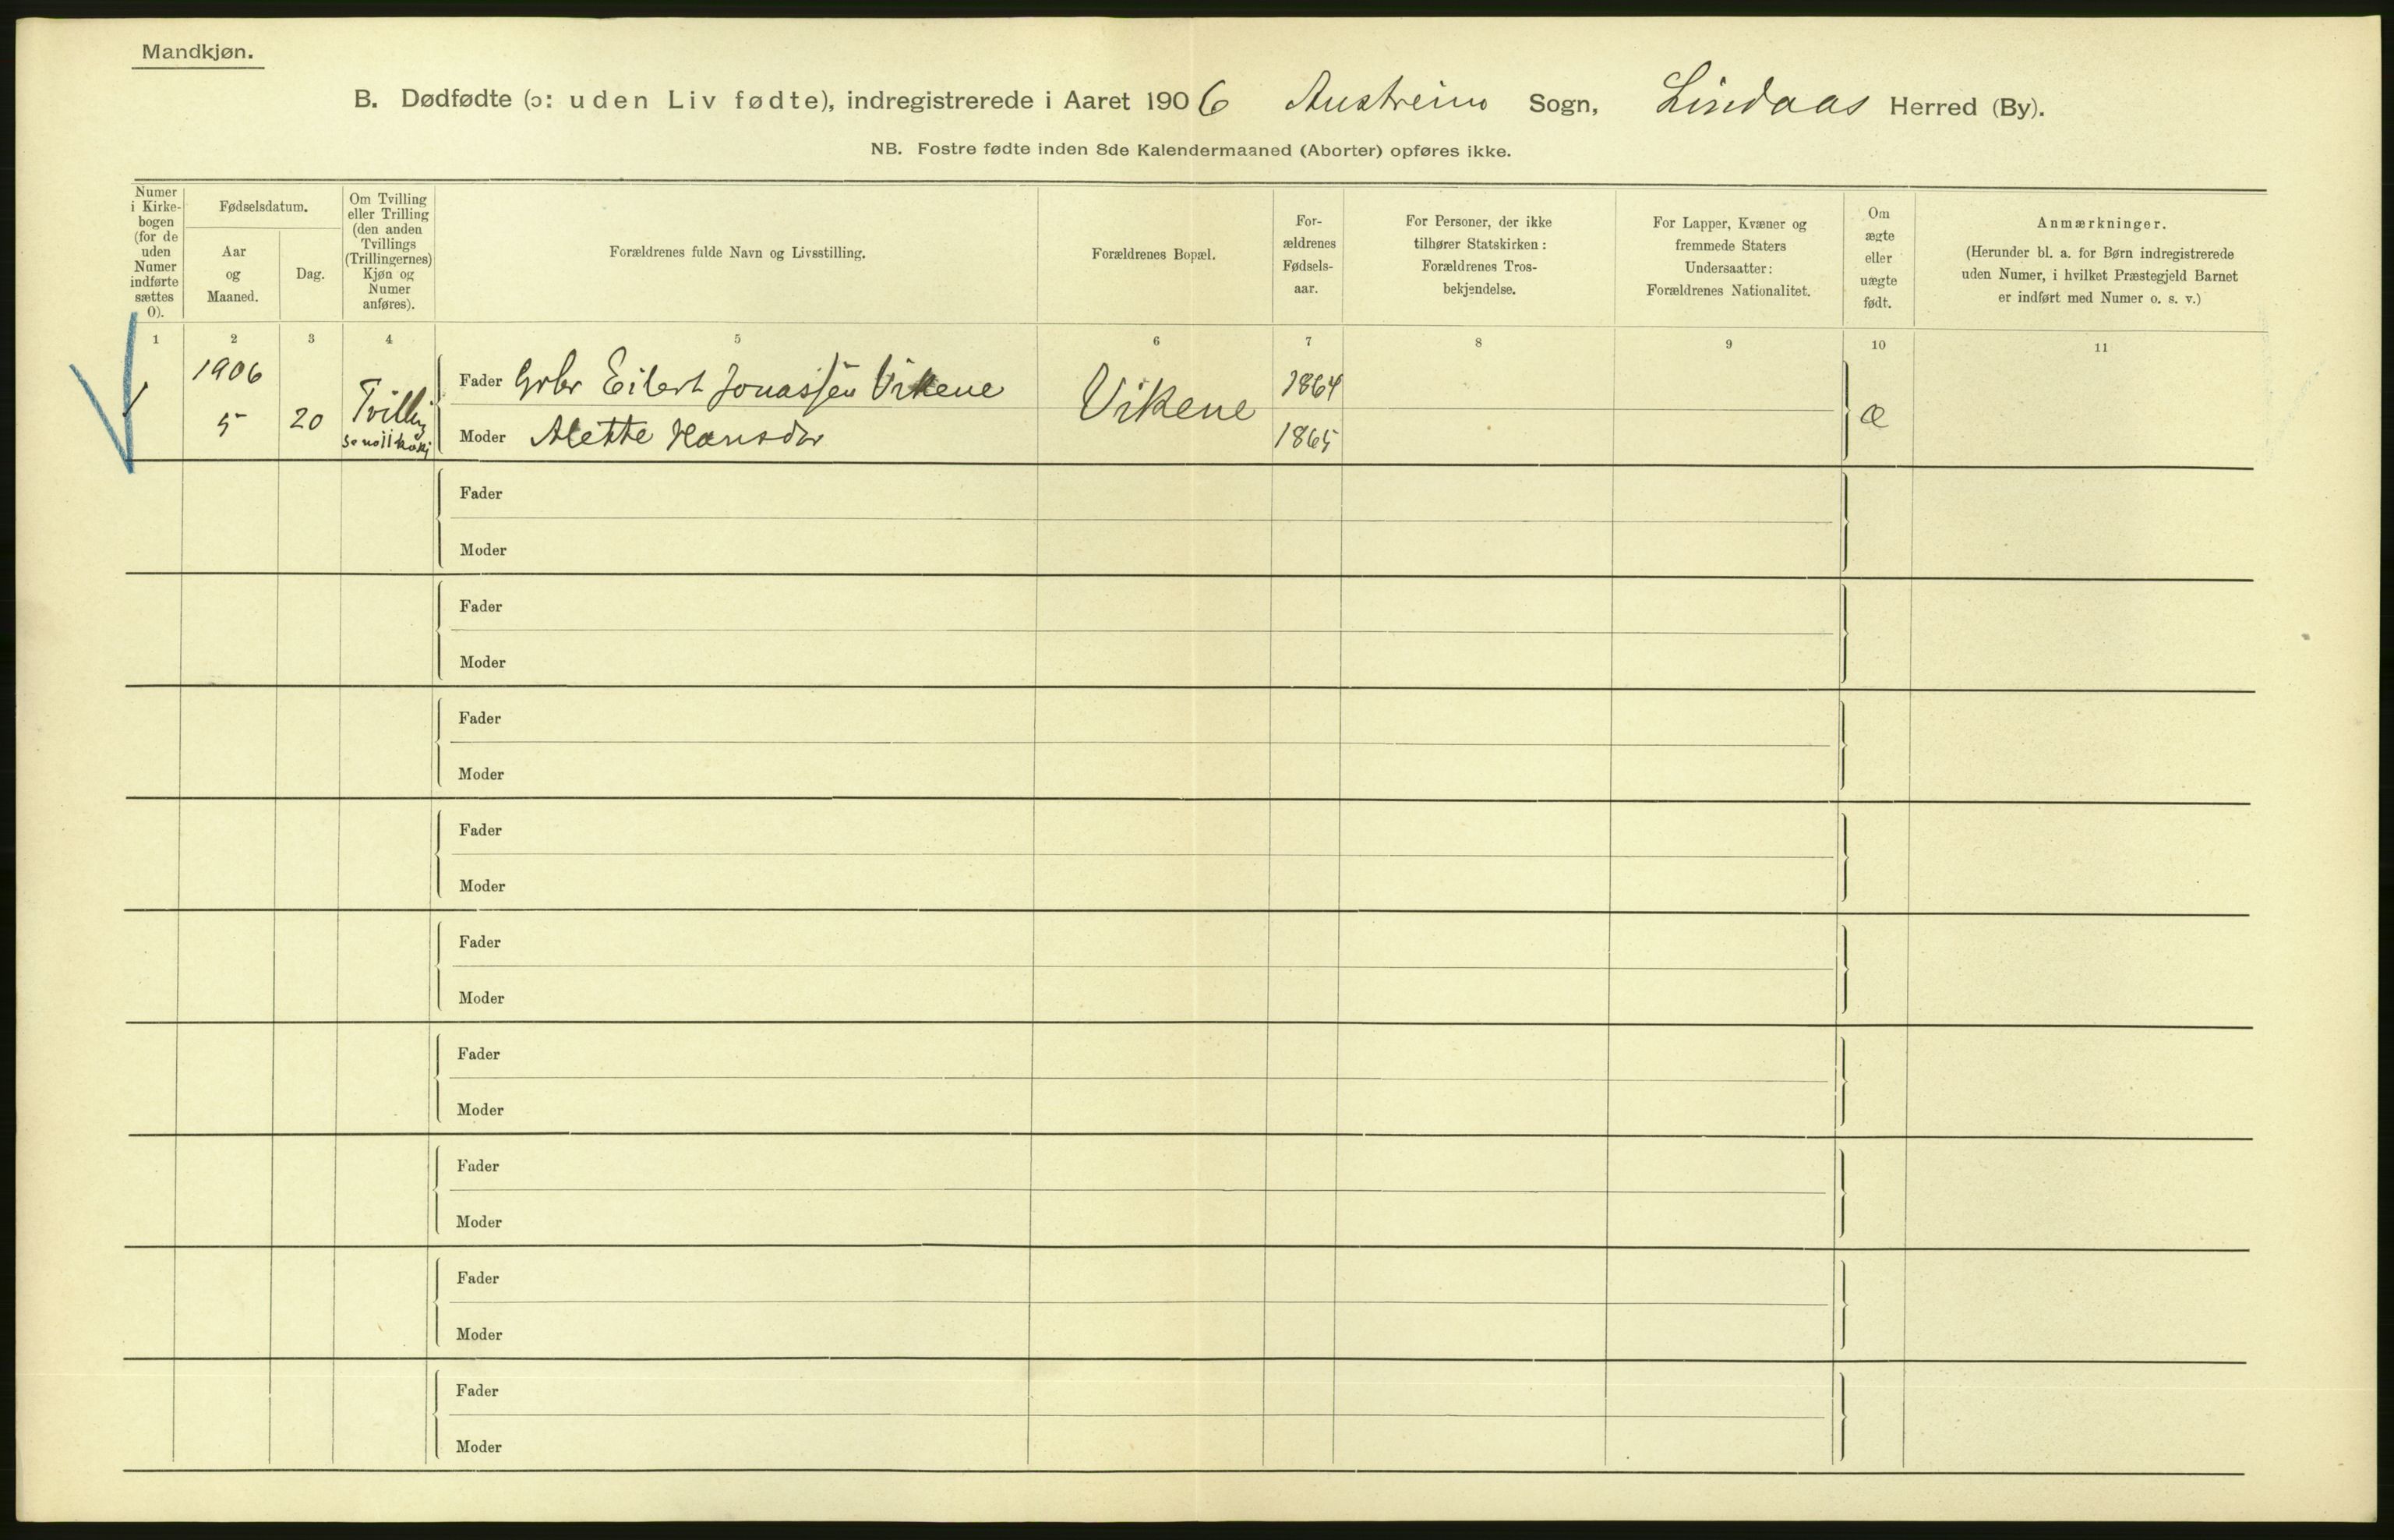 Mandkjøn.
B. Dødfødte (ɔ: uden Liv fødte), indregistrerede i Aaret 1906 Austreim Sogn, Lindaas Herred (By).
NB. Fostre fødte inden 8de Kalendermaaned (Aborter) opføres ikke.
Numer i Kirke-bogen (for de uden Numer indførte sættes 0).
Fødselsdatum.
Aar og Maaned.
Dag.
Om Tvilling eller Trilling (den anden Tvillings (Trillingernes) Kjøn og Numer anføres).
Forældrenes fulde Navn og Livsstilling.
Forældrenes Bopæl.
For-ældrenes Fødsels-aar.
For Personer, der ikke tilhører Statskirken: Forældrenes Tros-bekjendelse.
For Lapper, Kvæner og fremmede Staters Undersaatter: Forældrenes Nationalitet.
Om ægte eller uægte født.
Anmærkninger.
(Herunder bl. a. for Børn indregistrerede uden Numer, i hvilket Præstegjeld Barnet er indført med Numer o. s. v.)
1 2 3 4 5 6 7 8 9 10 11
1906
5 20 Tvilling
Fader Gbr Eilert Jonassen Vikene Vikene 1864 æ
Moder Alette Hansdr 1865
Fader
Moder
Fader
Moder
Fader
Moder
Fader
Moder
Fader
Moder
Fader
Moder
Fader
Moder
Fader
Moder
Fader
Moder